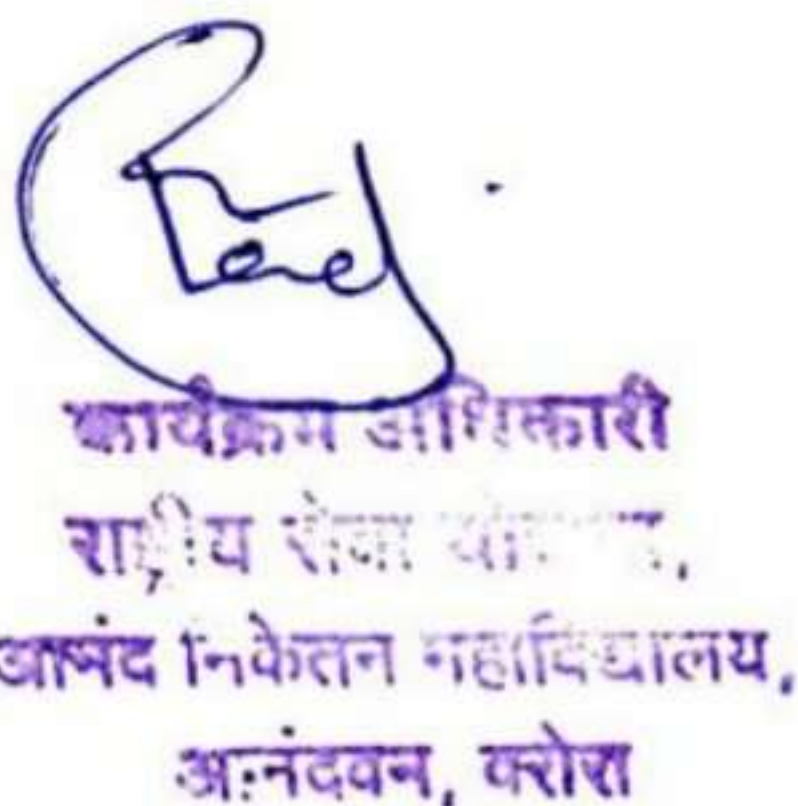 कार्यक्रम अधिकारी
राष्ट्रीय सेवा
आनंद निकेतन महाविद्यालय,
आनंदवन, वरोरा